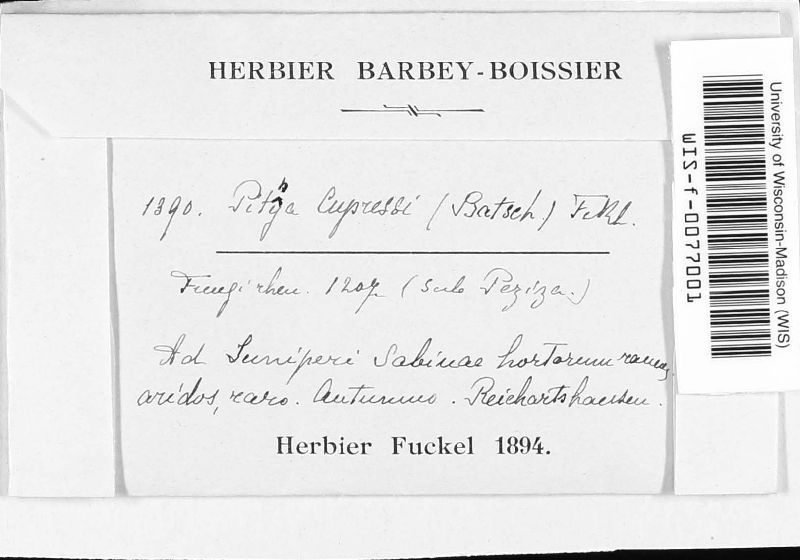 HERBIER BARBEY-BOISSIER
1390. Pithya Cupressi (Batsch.) Fckl.
Fungi rhen. 1207 (sub Peziza.)
Ad Juniperi Sabinae hortorum ramos
aridos, raro. Autumno. Reichartshausen.
Herbier Fuckel 1894.
University of Wisconsin-Madison (WIS)
WIS-f-0077001